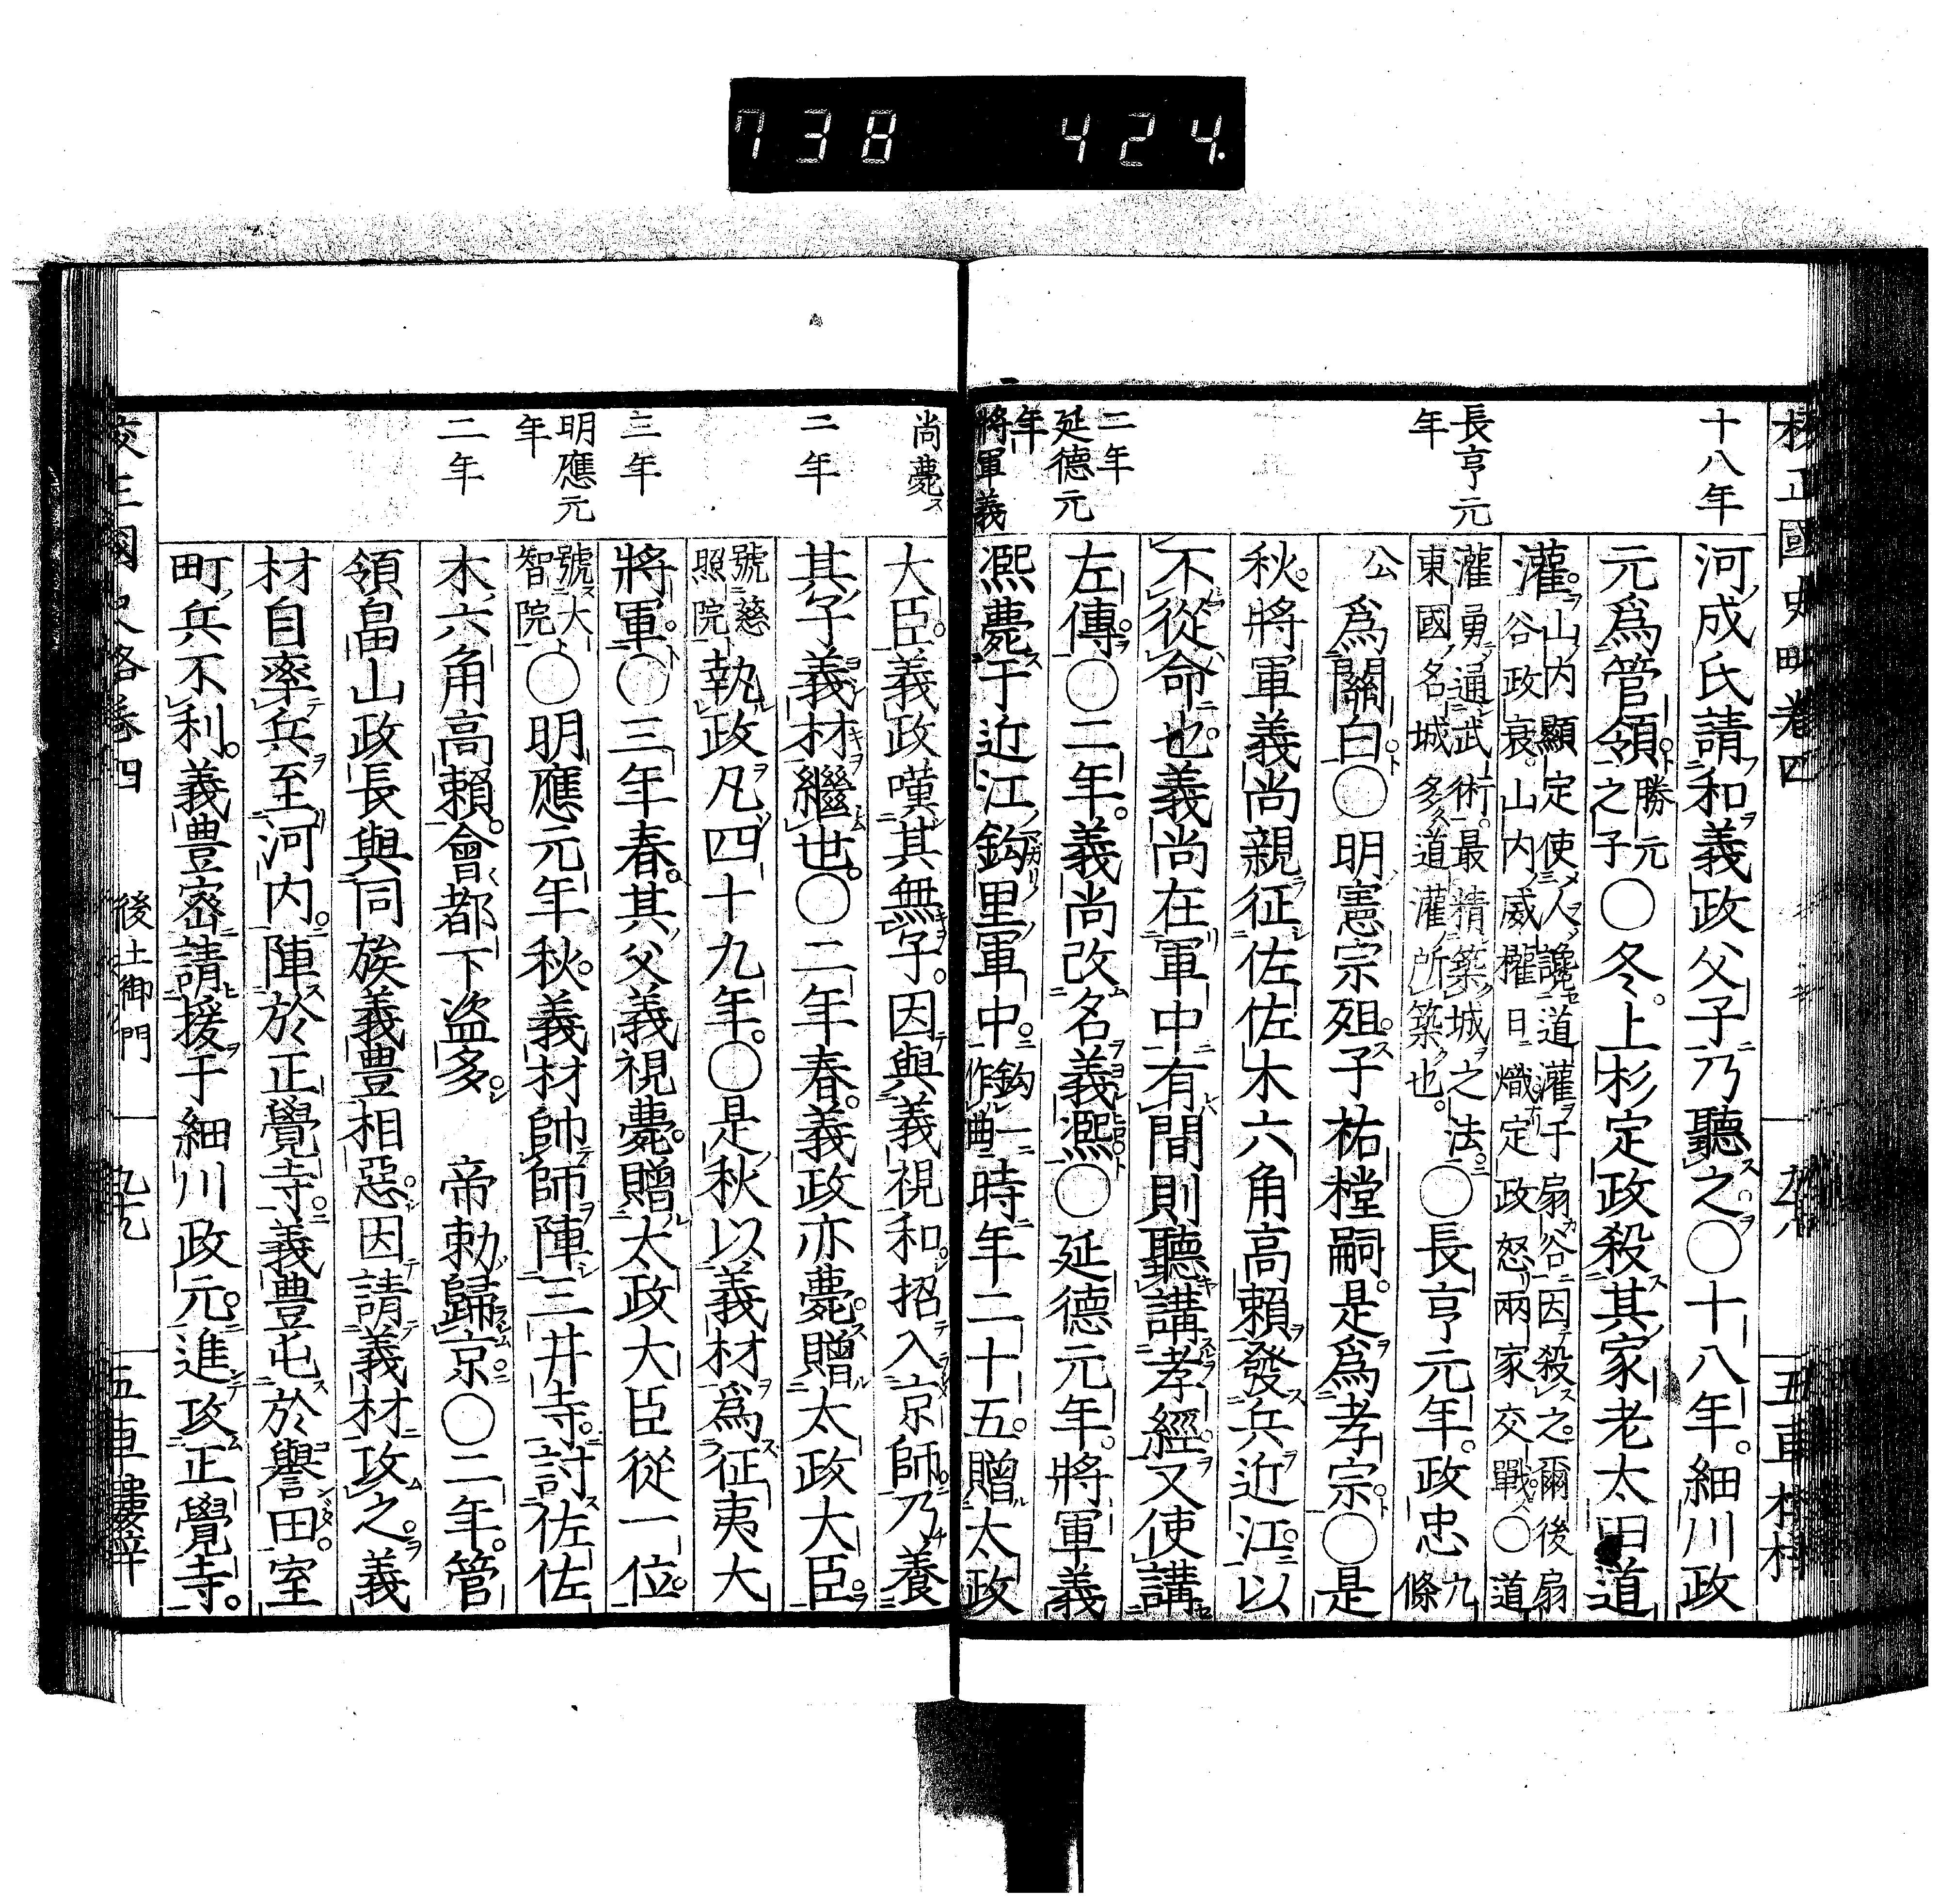 738 424.
校正國史略卷四
五車樓梓
十八年
河成氏請和義政父子乃聽之○十八年。細川政
元爲管領。勝元之子○冬。上杉定政殺其家老太田道
灌。山内顯定使人讒道灌于扇谷因殺之。爾後扇
谷政衰。山内威權日熾定政怒兩家交戰○道
灌勇通武術。最精築城之法。
東國名城多道灌所築也。
長亨元年
○長亨元年。政忠九條
公爲關白○明憲宗殂。子祐樘嗣。是爲孝宗○是
秋。將軍義尚親征佐佐木六角高頼發兵近江。以
不從命也。義尚在軍中有間則聽講孝經。又使講
二年
左傳。○二年。義尚改名義凞○延德元年。將軍義
延德元年
將軍義
凞薨于近江鈎里軍中。鈎一作曲時年二十五。贈太政
尚薨ス
大臣。義政嘆其無子。因與義視和。招入京師。乃養
二年
其子義材繼世。○二年春。義政亦薨。贈太政大臣。
號慈照院執政凡四十九年。○是秋以義材爲征夷大
三年
將軍。○三年春。其父義視薨。贈太政大臣從一位。
明應元年
號大智院○明應元年秋。義材帥師陣三井寺。討佐佐
二年
木六角高頼。會都下盜多。 帝勅歸京。○二年。管
領畠山政長與同族義豊相惡。因請義材攻之。義
材自率兵至河内。陣於正覺寺。義豊屯於譽田。室
町兵不利。義豊密請援于細川政元。進攻正覺寺。
後土御門
五車樓梓